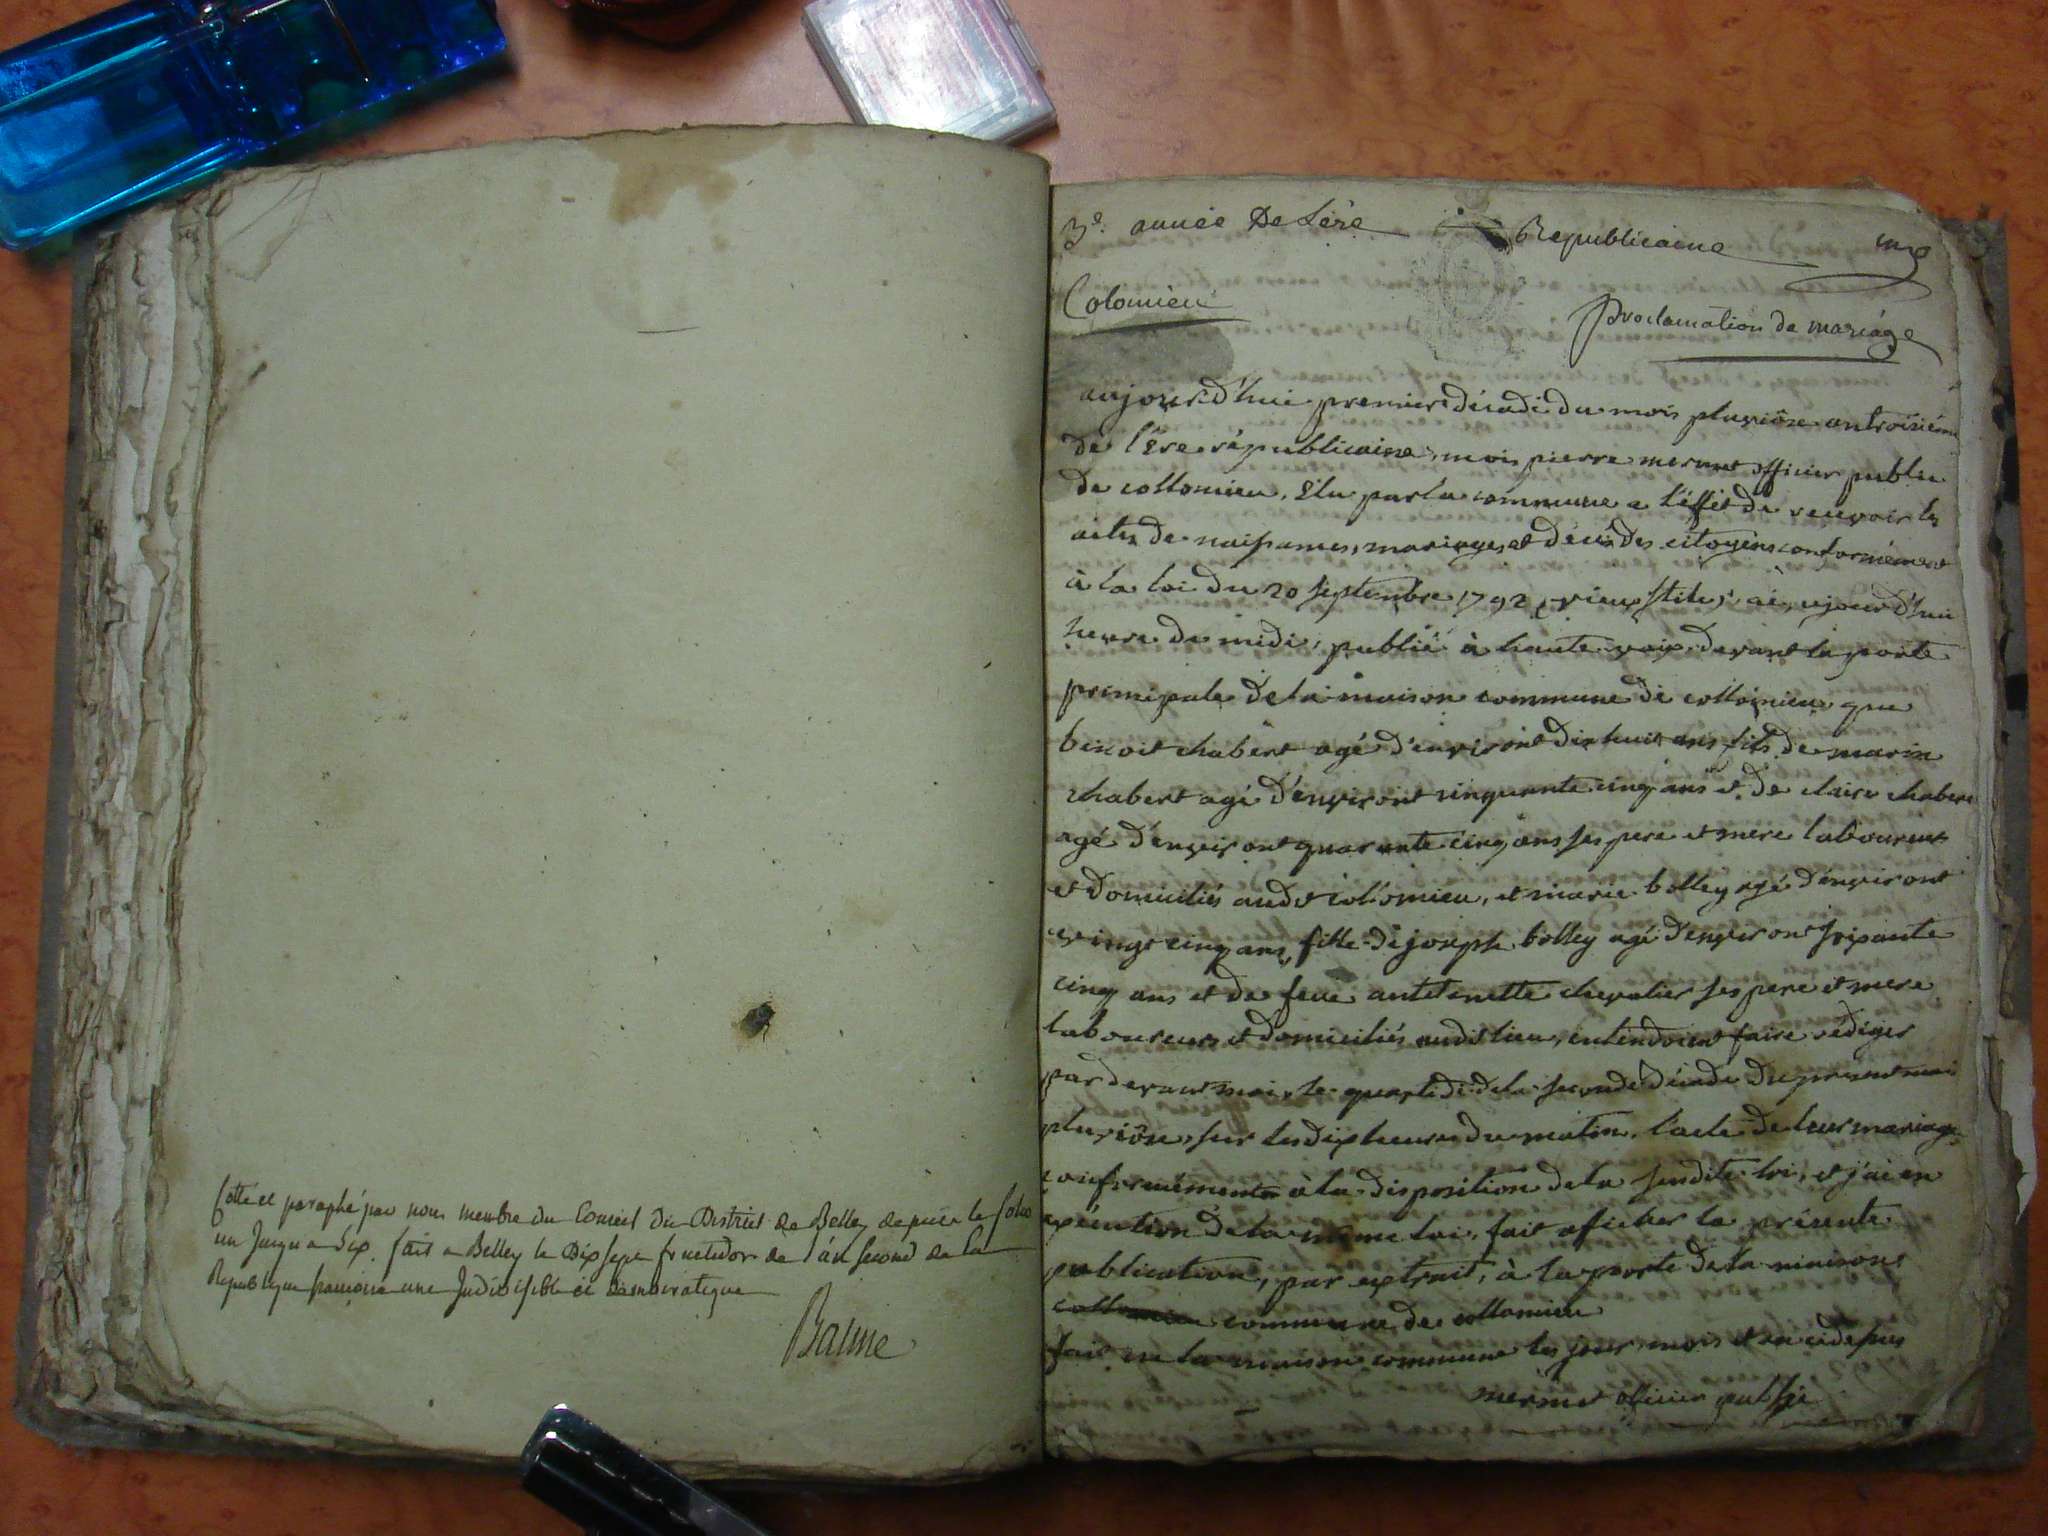 Cotté et paraphé par nous membre du Conseil du District de Belley depuis le folio
un Jusqu'a Six. fait a Belley le Dix sept fructidor de l'an second de la
Republique francoise une Indivisible et Democratique
Baume
3e. année De Lere Republicaine un
Colomieu
Proclamation de mariage
aujourd'hui premier décadi du mois pluviôse an troisiéme
de l'Ere républicaine, moi pierre mermet officier public
de collomieu, Elu par la commune a l'éffét de recevoir les
actes de naissances, mariages, et décès des citoyéns conformément
à la loi du 20 septembre 1792, vieux stile, ai, ajourd'hui
heure de midi, publié à haute voix devant la porte
principale de la maison commune de collomieu que
benoit chabert agé d'environt dix huit ans fils de marin
chabert agé d'environt cinquante cinq ans et de claire chabert
agé d'environt quarante cinq ans ses pere et mere laboureurs
et domiciliés audit colomieu, et marie bolley agé d'environt
vingt cinq ans, fille de joseph bolley agé d'environt soixante
cinq ans et de feue antoinette chevalier ses pere et mere
laboureurs et domiciliés audit lieu, entendoient faire rédiger
par devant moi, le quartidi de la seconde décade du present mois
pluviôse, sur les dix heures du matin, l'acte de leur mariage,
conformémentm à la disposition de la susdite loi, et j'ai en
exécution de la même loi, fait aficher la présente
publication, par extrait, à la porte de la maisont
commune de collomieu
fait en la maison commune les jour, mois et an cidessus
mermet officier public